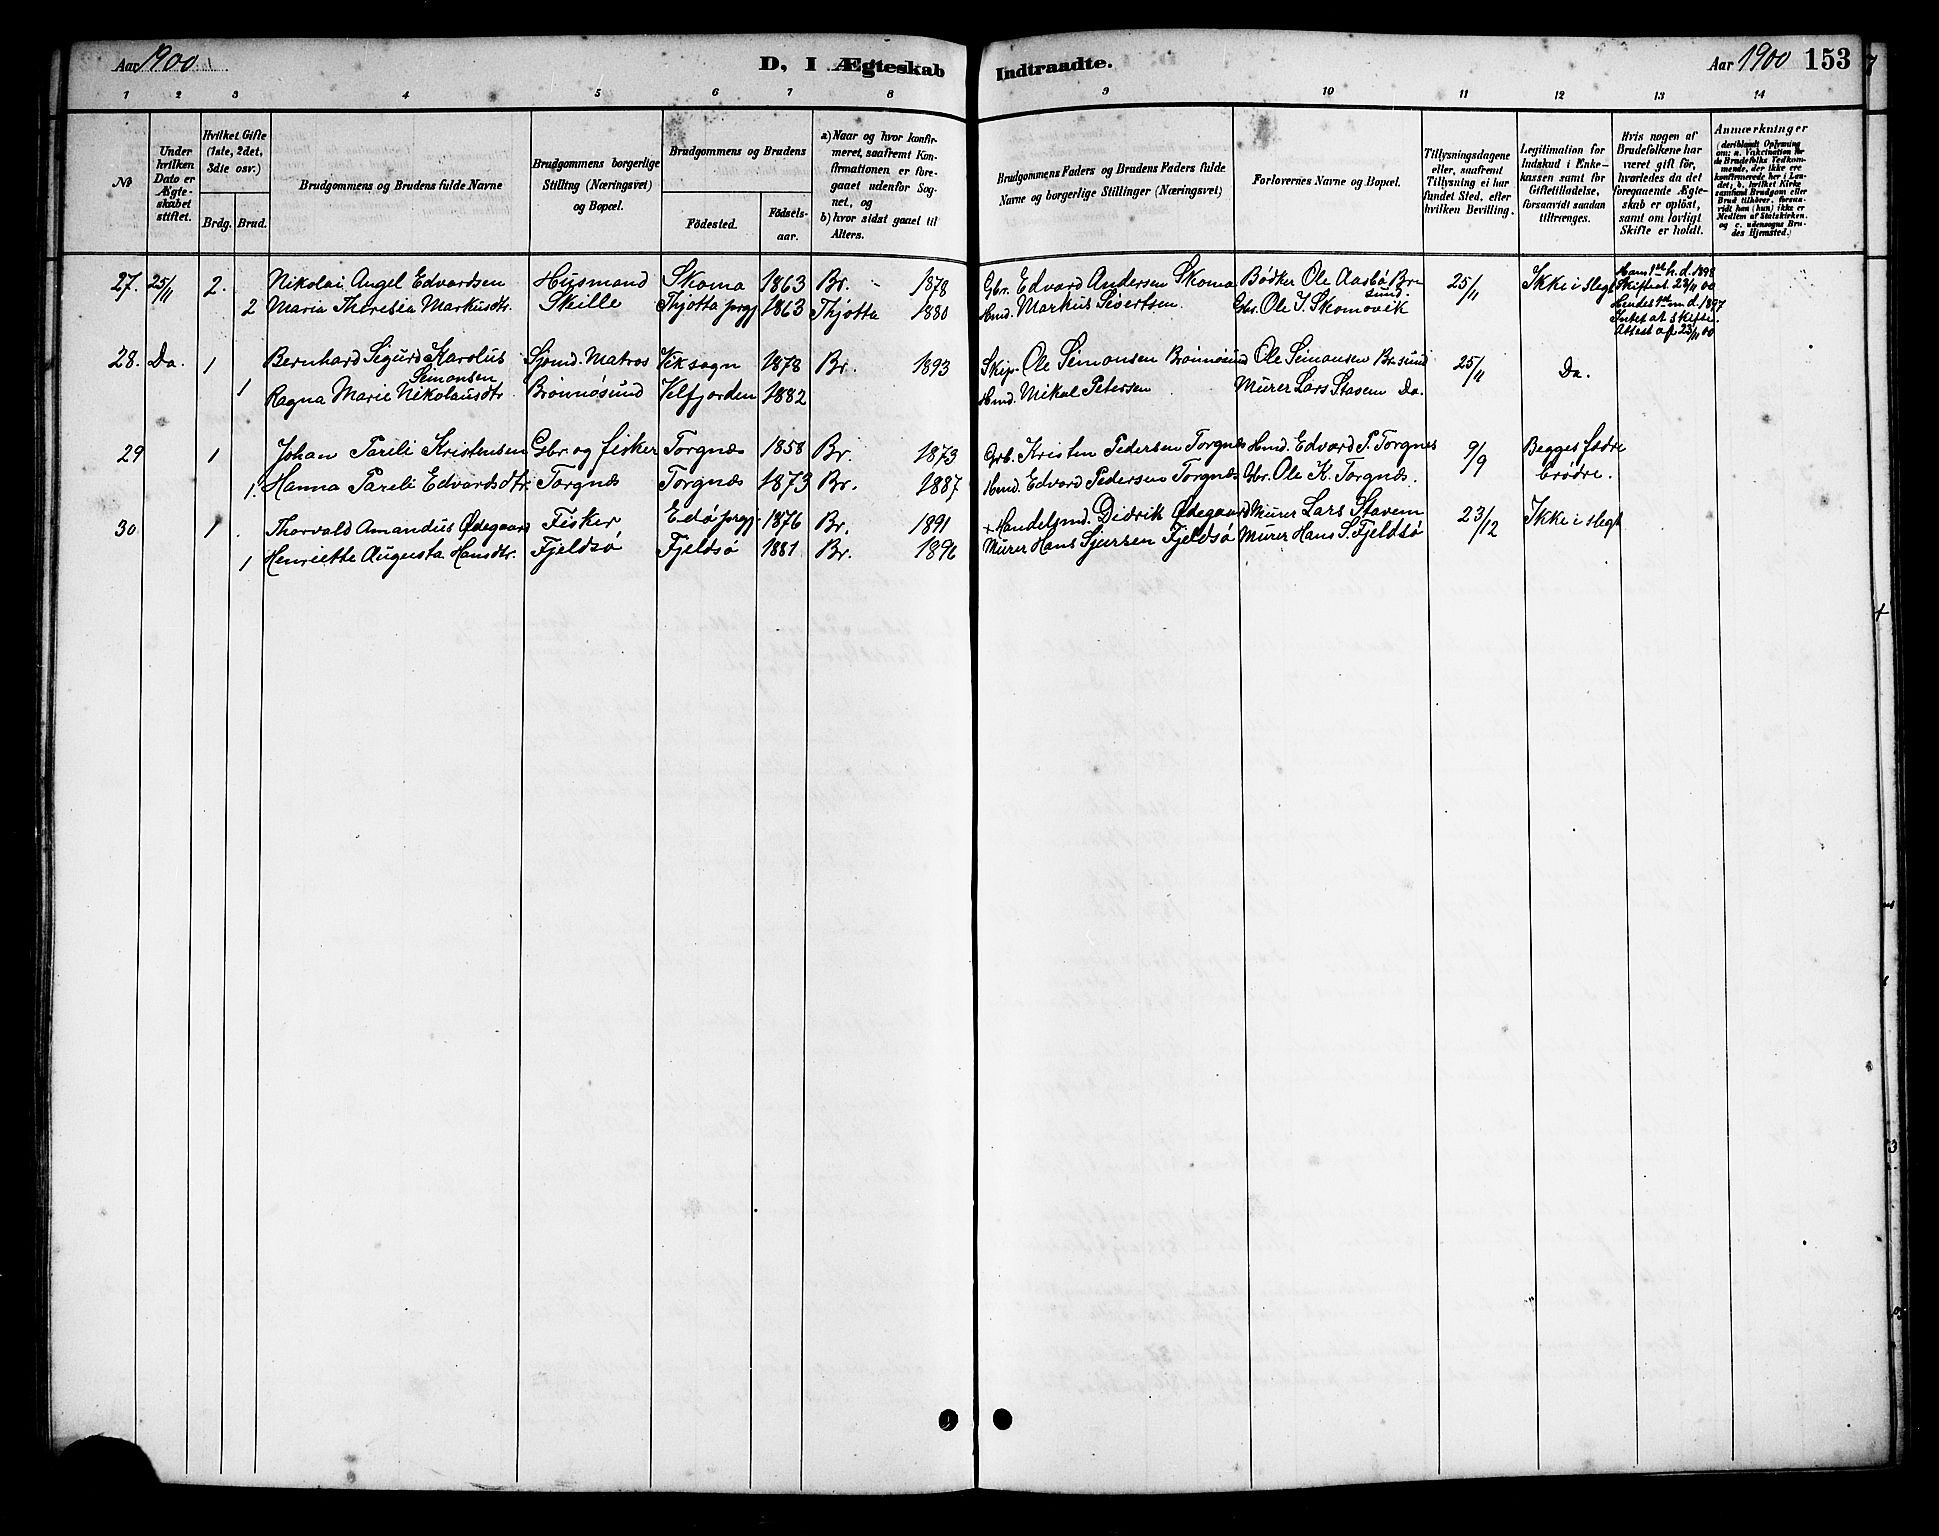 Aar 1900
D, I Ægteskab
Indtraadte.
Aar 1900
153
1 2 3 4 5 6 7 8
9 10 11 12 13 14
No
Under hvilken Dato er Ægte-skabet stiftet.
Hvilket Gifte (1ste, 2det, 3die osv.)
Brdg.
Brud.
Brudgommens og Brudens fulde Navne
Brudgommens borgerlige Stilling (Næringsvei) og Bopæl.
Brudgommens og Brudens
Födested.
Födsels-aar.
a) Naar og hvor konfir-meret, saafremt Kon-firmationen er fore-gaaet udenfor Sog-net, og
b) hvor sidst gaaet til Alters.
Brudgommens Faders og Brudens Faders fulde Navne og borgerlige Stillinger (Næringsvei)
Forlovernes Navne og Bopæl.
Tillysningsdagene eller, saafremt Tillysning ei har fundet Sted, efter hvilken Bevilling.
Legitimation for Indskud i Enke-kassen samt for Giftetilladelse, forsaavidt saadan tiltrænges.
Hvis nogen af Brudefolkene har været gift för, hvorledes da det foregaaende Ægte-skab er oplöst, samt om lovligt Skifte er holdt.
Anmærkninger (deriblandt Oplysning om: a. Vakcination for de Brudefolks Vedkom-mende, der ikke ere konfirmerede her i Lan-det; b. hvilket Kirke-samfund Brudgom eller Brud tilhörer, forsaa-vidt han (hun) ikke er Medlem af Statskirken. og c. udensogns Bru-des Hjemsted.)
27. 25/11 2. Nikolai Angel Edvardsen Husmand Skoma 1863 Br. 1878 Gbr. Edvard Andersen Skoma Bödker Ole Aasbö Brsund 25/11 Ikke i slegt
2 Maria Theresia Markusdtr. Skille Thjötta prgj 1863 Thjötta 1880 Hmd. Markus Sivertsen Gbr. Ole J. Skomovik
Hans 1ste h. d. 1898
Skifteat. 24/11 00
Hendes 1ste m. d. 1897
Intet at skifte.
Attest af 23/11 00
28. Da. 1 Bernhard Sigurd Karolus Simonsen Sjömd. Matros Viksogn 1878 Br. 1893 Skip. Ole Simonsen Brönnösund Ole Simonsen Brsund 25/11 Da.
1 Ragna Marie Nikolausdtr. Brönnösund Velfjorden 1882 Hmd. Mikal Petersen Murer Lars Stavem Da.
29 1 Johan Pareli Kristensen Gbr og fisker Torgnæs 1858 Br. 1873 Grb. Kristen Pedersen Torgnæs Hmd. Edvard P. Torgnes 9/9 Begges fædre
1. Hanna Pareli Edvardsdtr. Torgnæs Torgnæs 1873 Br. 1887 Hmd. Edvard Pedersen Torgnæs Gbr. Ole K. Torgnæs. brödre.
30 1 Thorvald Amandus Ødegaard Fisker Edö prgj. 1876 Br. 1891 + Handelsmd. Didrik Ødegaard Murer Lars Stavem 23/12 Ikke i slegt
1 Henriette Augusta Hansdtr. Fjeldsö Fjeldsö 1881 Br. 1896 Murer Hans Sjursen Fjeldsö Murer Hans S. Fjeldsö